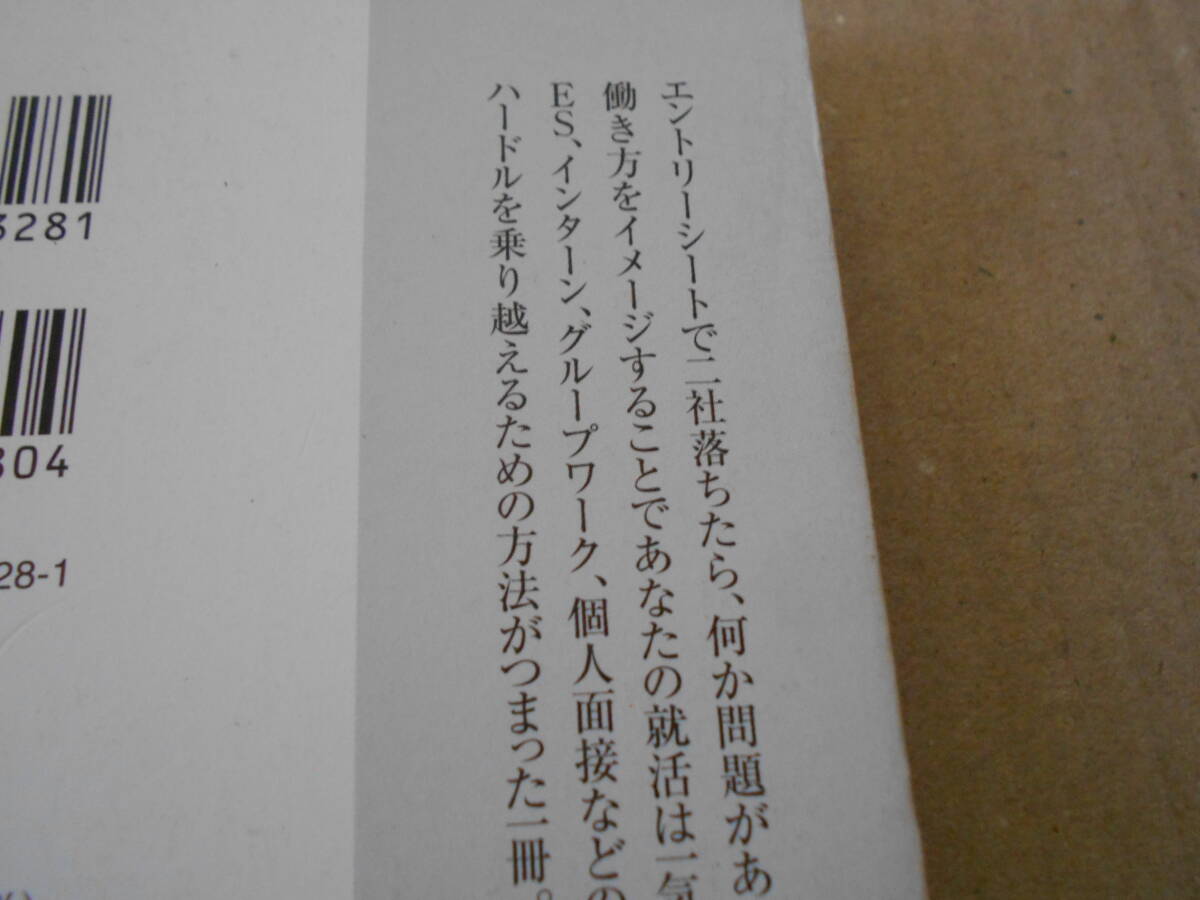 エントリーシートで二社落ちたら、何か問題があ
働き方をイメージすることであなたの就活は一気
ES、インターン、グループワーク、個人面接などの
ハードルを乗り越えるための方法がつまった一冊。
3281
304
28-1